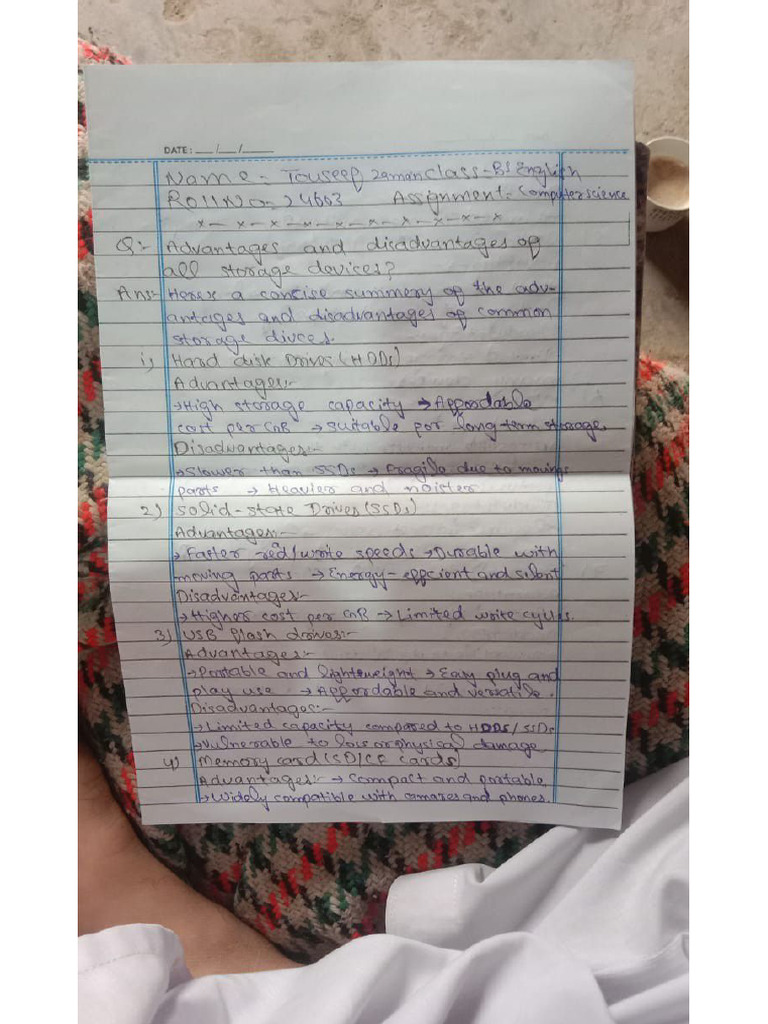 DATE: __/__/____
Name = Touseef zaman class - BS English
Roll No = 24663 Assignment = Computer science
x - x - x - x - x - x - x - x - x - x
Q:- Advantages and disadvantages of
all storage devices?
Ans:- Here's a concise summery of the adv-
antages and disadvantages of common
storage divces.
i) Hard disk Drives (HDDs)
Advantages:-
→High storage capacity → Affordable
cost per GB → suitable for long-term storage.
Disadvantages:-
→Slower than SSDs → Fragile due to moving
parts → Heavier and noister
2) Solid-state Drives (SSDs)
Advantages:-
→Faster read/write speeds →Durable with
moving parts → Energy-effcient and silent
Disadvantages:-
→Higher cost per GB → Limited write cycles.
3) USB flash drives:-
Advantages:-
→Portable and lightweight → Easy plug and
play use → Affordable and versatile.
Disadvantages:-
→Limited capacity compared to HDDs/SSDs
→Vulnerable to loss or physical damage
4) Memory card (SD/CF cards)
Advantages:- → Compact and portable
→Widely compatible with camares and phones.